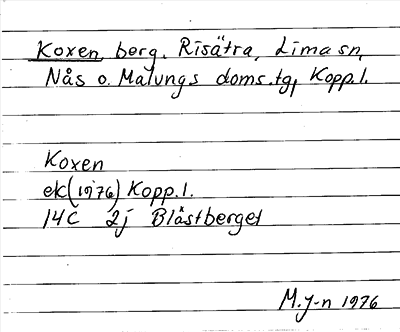 Koxen, berg. Risätra, Lima sn,
Nås o. Malungs doms.tg, Kopp.l.
Koxen
ek(1976) Kopp.l.
14C 2j Blåstberget
M.J-n 1976